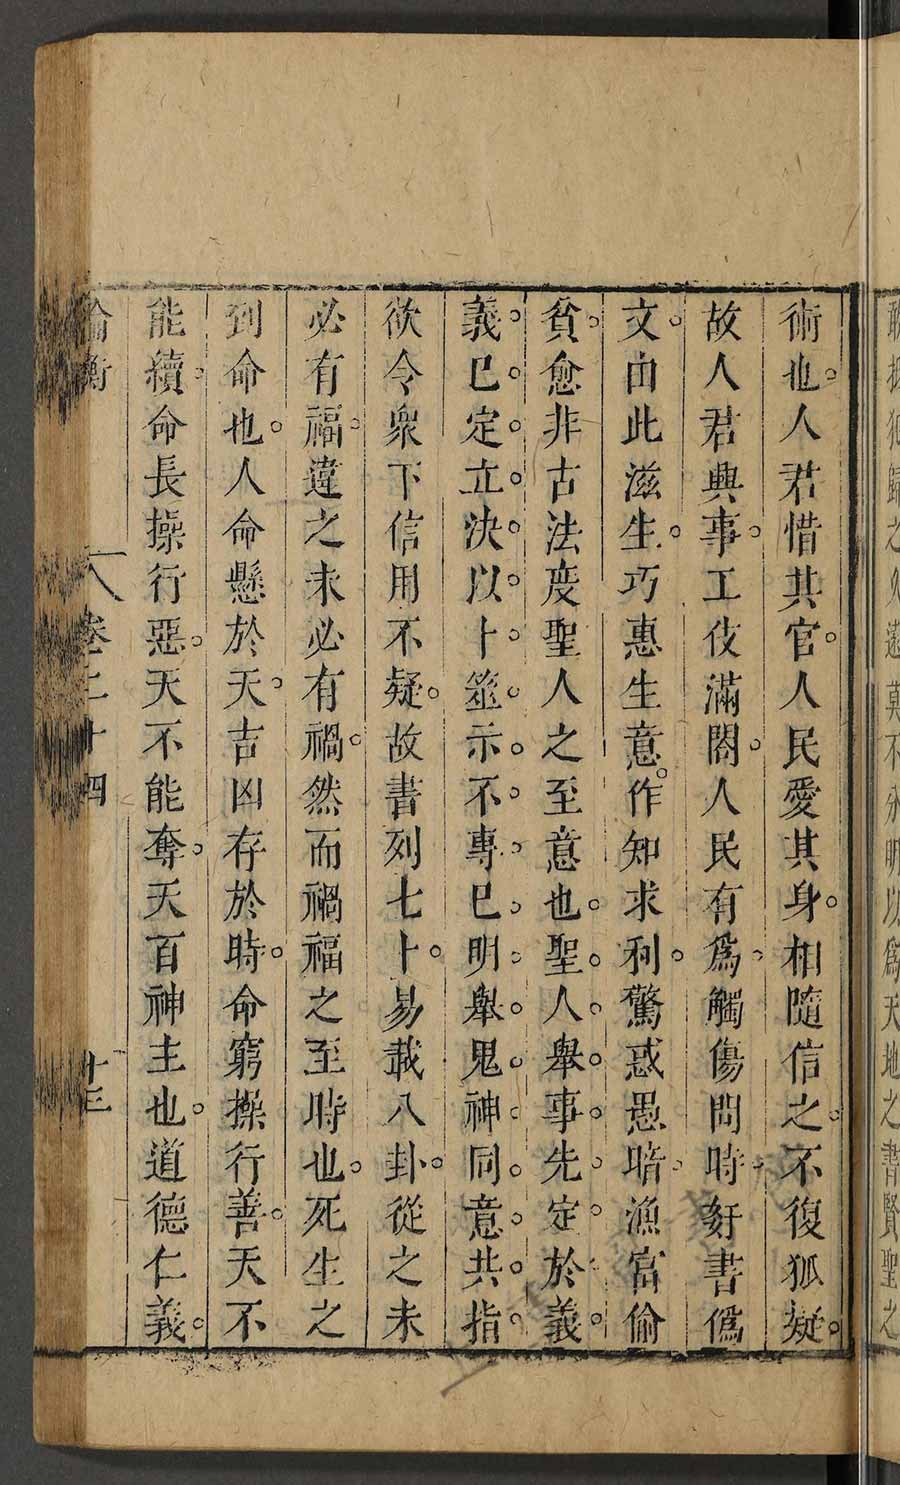 敢抵犯歸之久遠莫不分明以爲天地之書賢聖之
術也。人君惜其官。人民愛其身。相隨信之。不復狐疑。
故人君興事。工伎滿閤。人民有爲。觸傷問時。奸書僞
文。由此滋生。巧惠生意。作知求利。驚惑愚暗。漁富偷
貧。愈非古法度聖人之至意也。聖。人。舉。事。先。定。於。義。
義。已。定。立。決。以。卜。筮。示。不。專。已。明。舉。鬼。神。同。意。共。指。
欲令衆下信用不疑。故書列七卜。易載八卦。從之未
必有福。違之未必有禍。然而禍福之至時也。死生之
到命也。人命懸於天。吉凶存於時。命窮操行善。天不
能續。命長操行惡。天不能奪。天百神主也。道德仁義。
論衡 卷二十四 十三